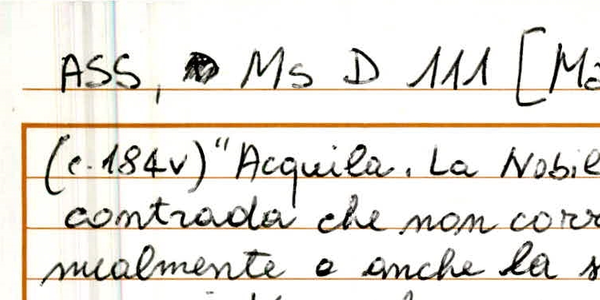 ASS, Ms D 111 [Ma
(c. 184v) "Acquila. La Nobil
contrada che non corr
nualmente o anche la s